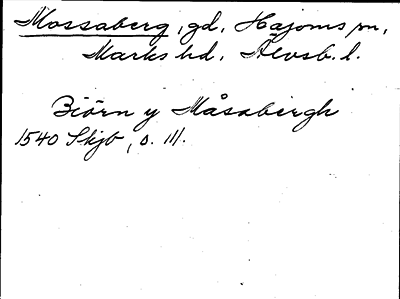 Mossaberg, gd, Hajoms sn,
Marks hd, Älvsb. l.
Biörn y Måsabergh
1540 Skjb, s. 111.